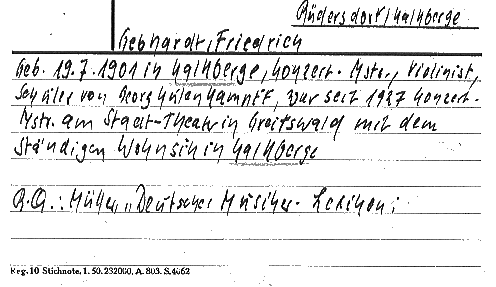 Rüdersdorf/Kalkberge
Gebhardt, Friedrich
Geb. 19.7.1901 in Kalkberge, Konzert-Mstr., Violinist,
Schüler von Georg Kulenkampff, war seit 1927 Konzert-
Mstr. am Stadt-Theater in Greifswald mit dem
ständigen Wohnsitz in Kalkberge
Müller, "Deutsches Musiker-Lexikon;
Reg. 10 Stichnote, 1. 50. 232000, A. 803. S. 4662